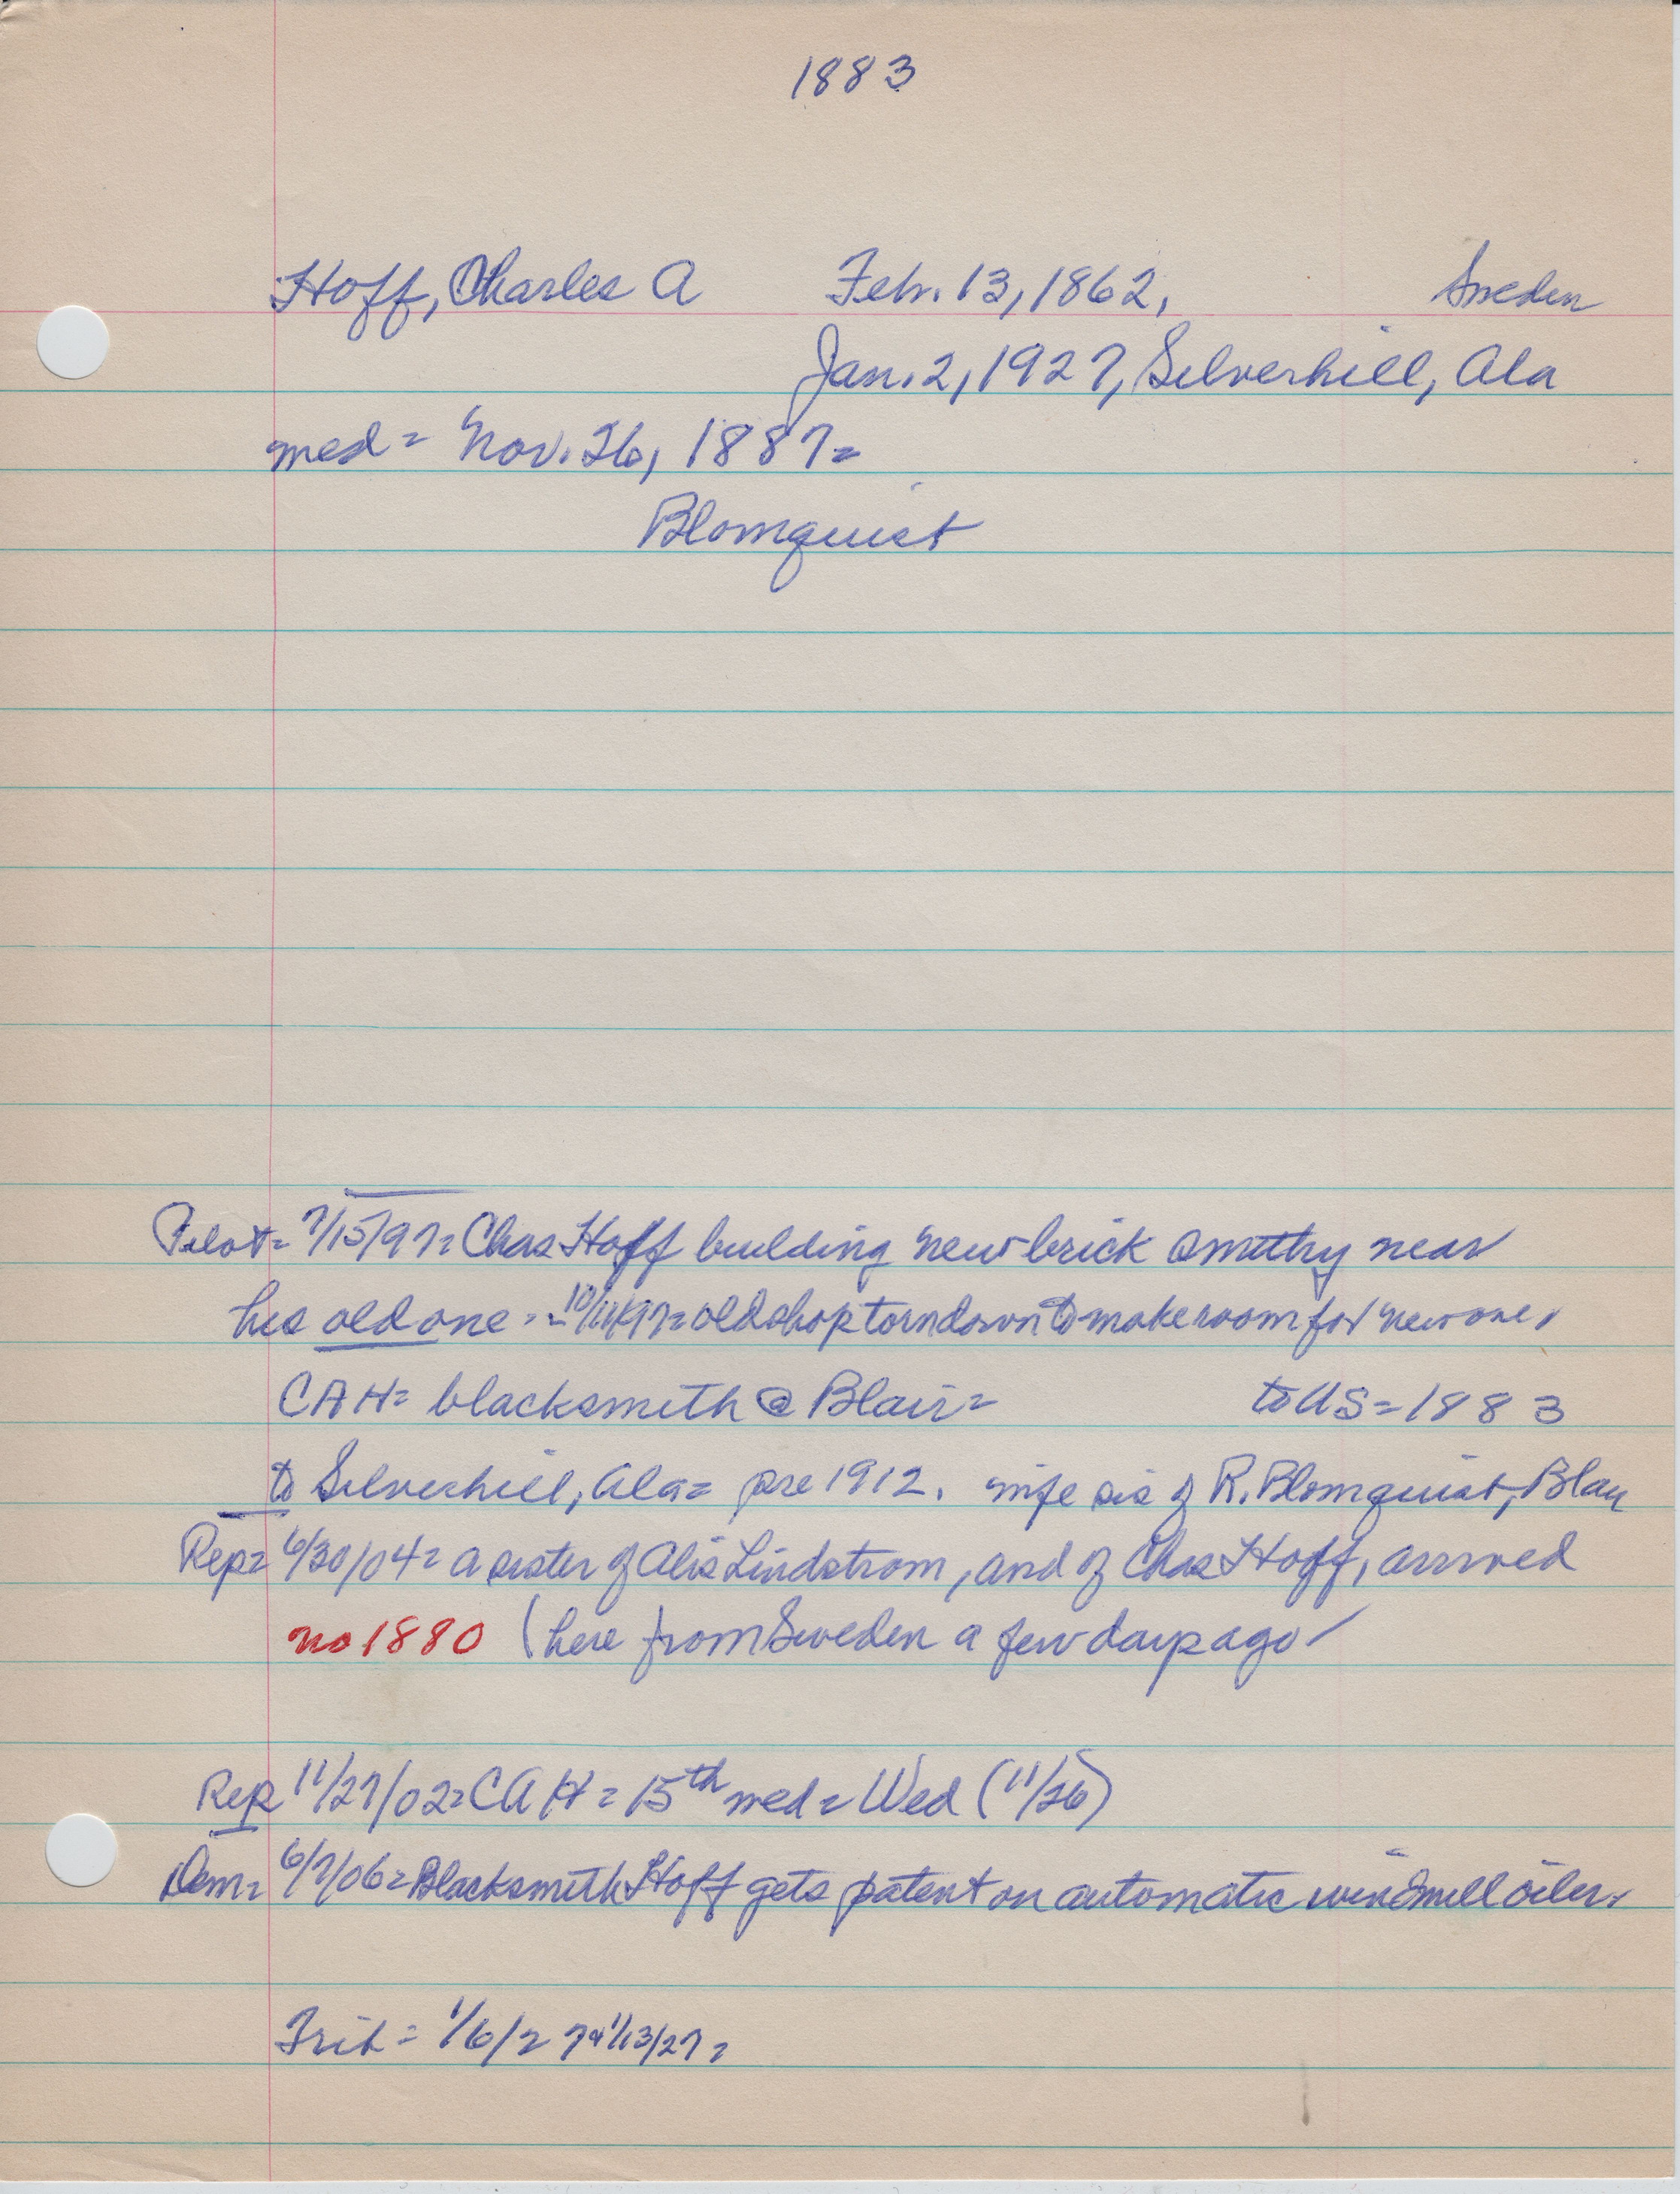 1883
Hoff, Charles A Feb. 13, 1862, Sweden
Jan. 2, 1927, Silverhill, Ala
med = Nov. 26, 1887=
Blomquist
Pilot = 7/15/97= Chas Hoff building new brick smithy near
his old one - 10/14/97= old shop torn down to make room for new one,
CAH= blacksmith @ Blair= to US = 1883
to Silverhill, Ala= pre 1912. wife sis of R. Blomquist, Blair
Rep= 6/30/04= a sister of Alis Lindstrom, and of Chas Hoff, arrived
no 1880 (here from Sweden a few days ago
Rep 11/27/02= CAH = 15th med = Wed (11/26)
Dem= 6/7/06= Blacksmith Hoff gets patent on automatic windmill oiler.
Trib = 1/6/27 & 1/13/27 =